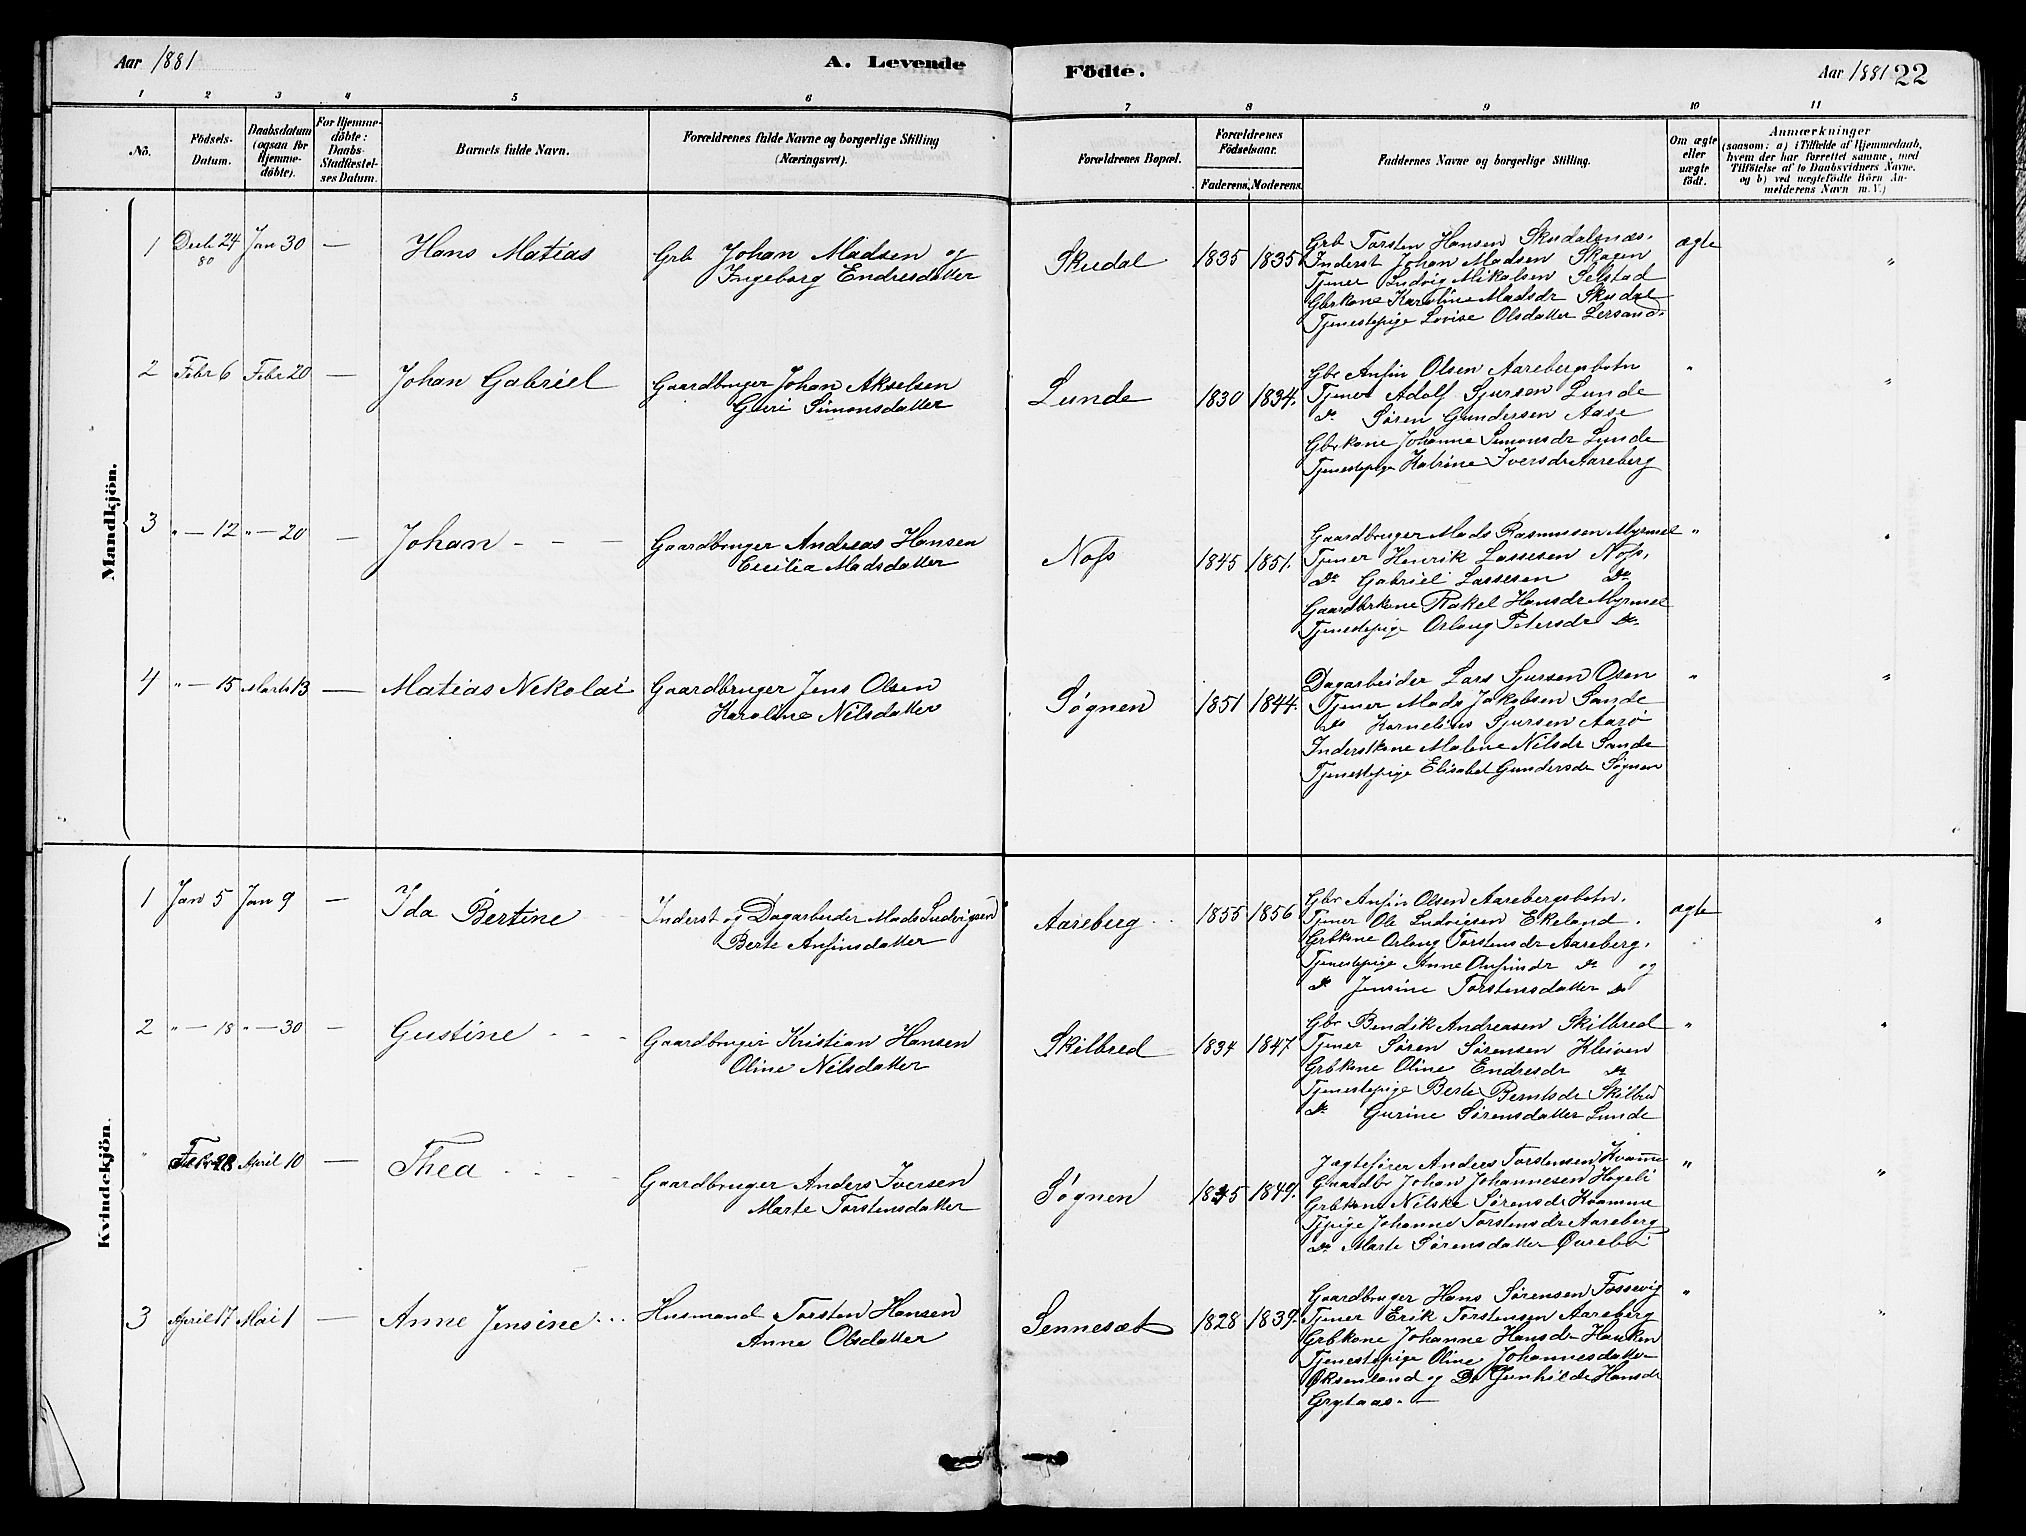 Aar 1881
A. Levende
Födte.
Aar 1881
22
1 2 3 4 5 6 7 8 9 10 11
No.
Födsels-Datum.
Daabsdatum (ogsaa for Hjemmedöbte).
For Hjemmedöbte: Daabs-Stadfæstelses Datum.
Barnets fulde Navn.
Forældrenes fulde Navne og borgerlige Stilling (Næringsvei).
Forældrenes Bopæl.
Forældrenes Födselsaar.
Faderens. Moderens.
Faddernes Navne og borgerlige Stilling.
Om ægte eller uægte födt.
Anmærkninger
(saasom: a) i Tilfælde af Hjemmedaab, hvem der har forrettet samme, med Tilföielse af to Daabsvidners Navne, og b) ved uægtefödte Börn Anmelderens Navn m. V.)
Mandkjön.
1 Decb 24 80 Jan 30 — Hans Matias
Grb Johan Madsen og
Ingeborg Endresdatter
Skudal 1835 1835
Grb Torsten Hansen Skudalsnæs.
Inderst Johan Madsen Skagen
Tjener Ludvig Mikalsen Selstad
Gbrkone Karoline Madsdr Skudal
Tjenestepige Lovise Olsdatter Lersand.
ægte "
2 Febr 6 Febr 20 — Johan Gabriel
Gaardbruger Johan Akselsen
Guri Simonsdatter
Lunde 1830 1834.
Gbr Anfin Olsen Aarebergsbotn
Tjener Adolf Sjursen Lunde
do Søren Gundersen Aase
Gbrkone Johanne Simonsdr Lunde
Tjenestepige Katrine Iversdr Aareberg
" "
3 " — 12 " — 20 — Johan - - -
Gaardbruger Andreas Hansen
Cecilia Madsdatter
Nofs 1845 1851.
Gaardbruger Mads Rasmussen Myrmel
Tjener Henrik Lassesen Nofs.
do Gabriel Lassesen do
Gaardbrkone Rakel Hansdr Myrmel
Tjenestepige Orlaug Petersdr do
" "
4 " — 15 Marts 13 — Matias Nikolai
Gaardbruger Jens Olsen
Karoline Nilsdatter
Søgnen 1851 1844.
Dagarbeider Lars Sjursen Osen
Tjener Mads Jakobsen Sande
do Kornelius Sjursen Aarø
Inderstkone Malene Nilsdr Sande
Tjenestepige Elisabet Gundersdr Søgnen
" "
Kvindekjön.
1 Jan 5 Jan 9 — Ida Bertine
Inderst og Dagarbeider Mads Ludvigsen
Berte Anfinsdatter
Aareberg 1855 1856
Gbr Anfin Olsen Aarebergsbotn.
Tjener Ole Ludvigsen Ekeland.
Grbkone Orlaug Torstensdr Aareberg.
Tjenestepige Anne Anfinsdr do og
do Jensine Torstensdatter do
ægte "
2 " — 18 " — 30 — Gustine - - -
Gaardbruger Kristian Hansen
Oline Nilsdatter
Skilbred 1834 1847
Gbr Bendik Andreasen Skilbred
Tjener Søren Sørensen Kleiven
Grbkone Oline Endresdr do
Tjenestepige Berte Berntsdr Skilbred
do Gurine Sørensdatter Lunde
" "
" Febr 28 April 10 — Thea - - -
Gaardbruger Anders Iversen
Marte Torstensdatter
Søgnen 1845 1849.
Jægtefører Anders Torstensen Kvamme
Gaardbr Johan Johannesen Høgeli
Grbkone Nilske Sørensdr Kvamme
Tjpige Johanne Torstensdr Aareberg
do Marte Sørensdatter Øurebø
" "
3 April 17 Mai 1 — Anne Jensine...
Husmand Torsten Hansen
Anne Olsdatter
Sennesæt 1828 1839.
Gaardbruger Hans Sørensen Fossevig
Tjener Erik Torstensen Aareberg
Grbkone Johanne Hansdr Hauken
Tjenestepige Oline Johannesdatter
Øksenland og Do Gunhilde Hansdr
Grytaas. —
" "